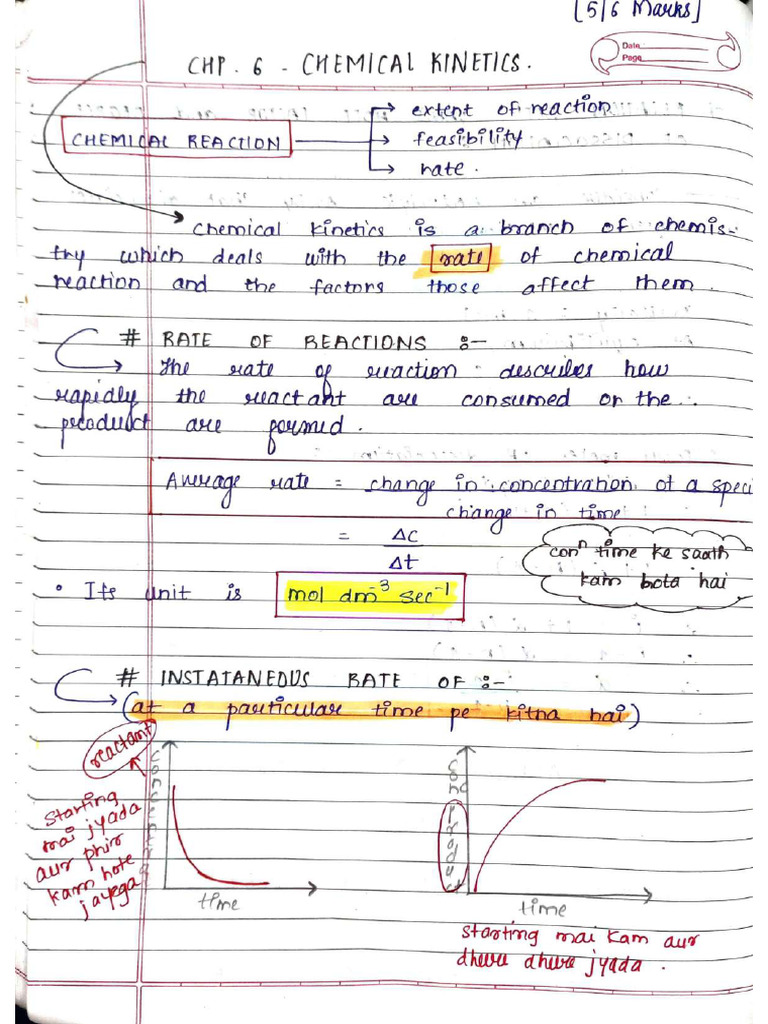 [5/6 Marks]
Date
Page
CHP. 6 - CHEMICAL KINETICS.
extent of reaction
CHEMICAL REACTION
feasibility
rate.
Chemical kinetics is a branch of chemis-
try which deals with the rate of chemical
reaction and the factors those affect them.
# RATE OF REACTIONS :-
The rate of reaction describes how
rapidly the reactant are consumed or the
product are formed.
Average rate = change in concentration of a speci
change in time
= ΔC
Δt
conⁿ time ke saath
kam hota hai
• Its unit is mol dm⁻³ sec⁻¹
# INSTATANEOUS RATE OF :-
(at a particular time pe kitna hai)
reactant
starting
mai jyada
aur phir
kam hote
jayega
time
product
time
starting mai kam aur
dheere dheere jyada.